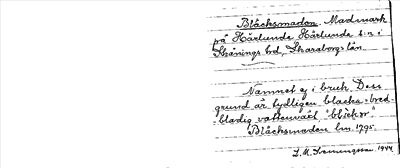 Blåcksmaden. Madmark
på Härlunda Härlunda s:n i
Skånings hd, Skaraborgs län.
Namnet ej i bruk. Dess
grund är tydligen blacks = bred-
bladig vattenväxt, "bläckor"
Blåcksmaden lm. 1795.
1944